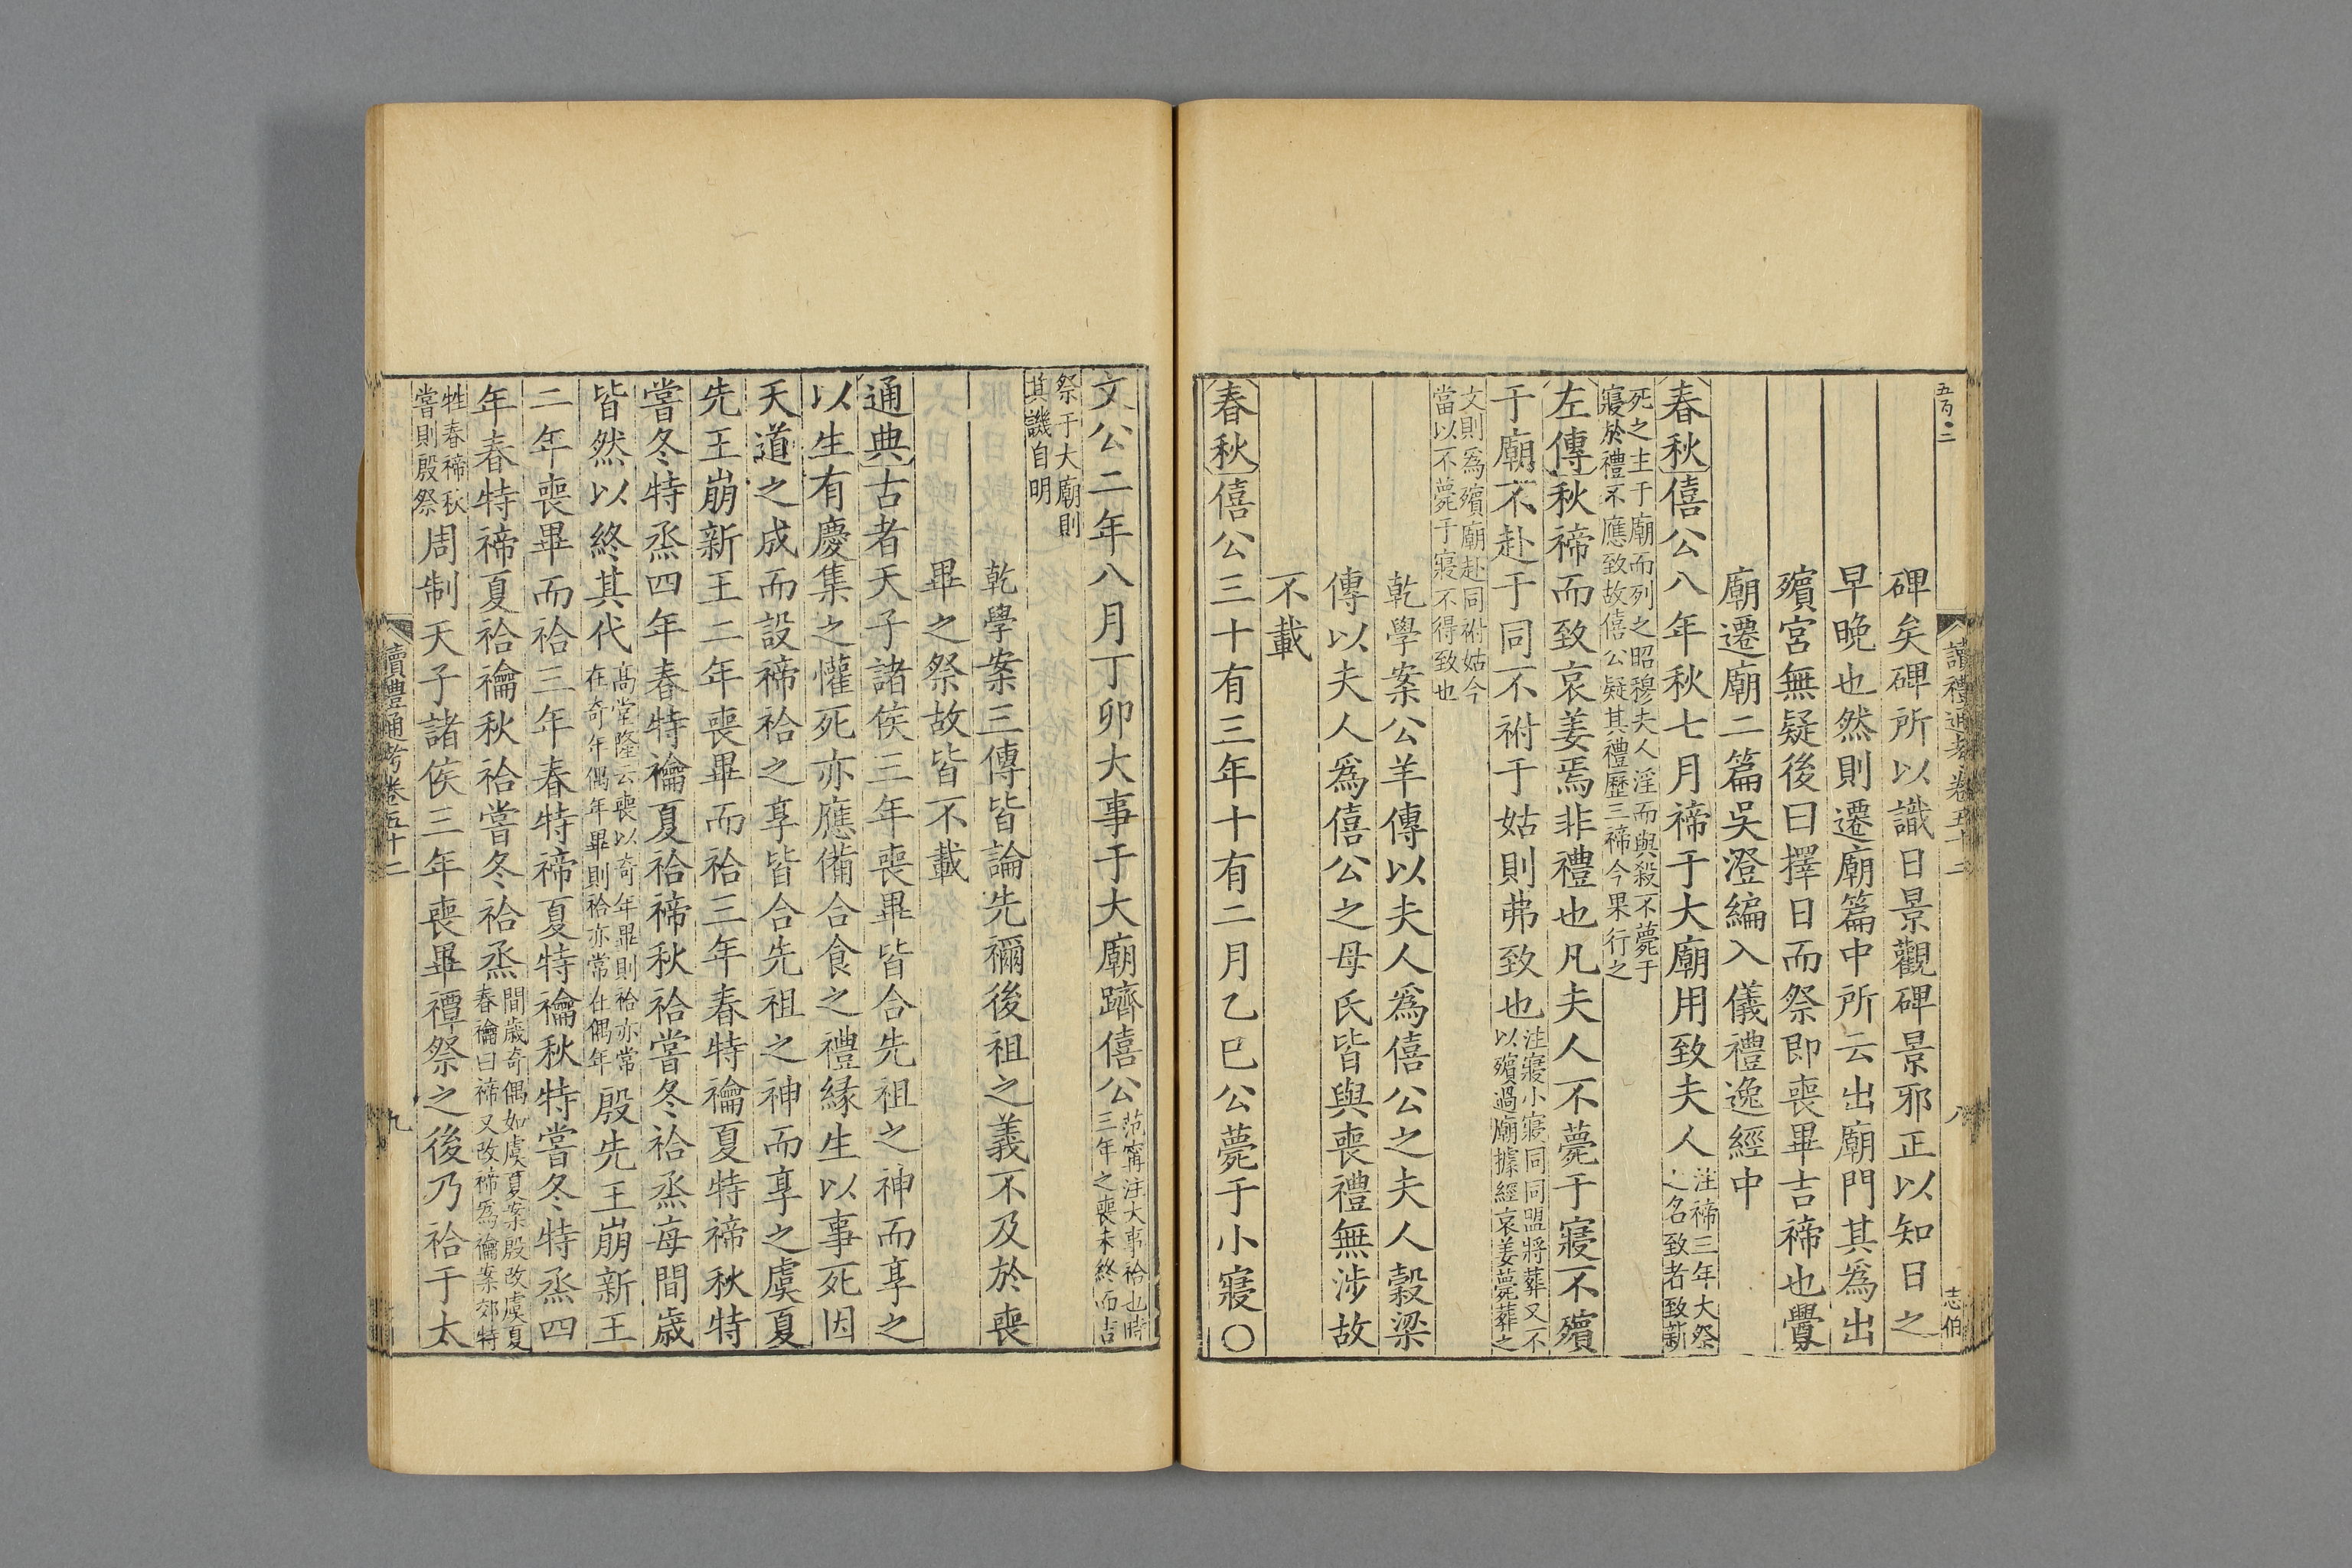 五百〇二
讀禮通考卷五十二
八
志伯
碑矣碑所以識日景觀碑景邪正以知日之
早晚也然則遷廟篇中所云出廟門其為出
殯宮無疑後曰擇日而祭即喪畢吉禘也釁
廟遷廟二篇吳澄編入儀禮逸經中
春秋僖公八年秋七月禘于大廟用致夫人注禘三年大祭之名致者致新
死之主于廟而列之昭穆夫人淫而與殺不薨于寢於禮不應致故僖公疑其禮歷三禘今果行之
左傳秋禘而致哀姜焉非禮也凡夫人不薨于寢不殯
于廟不赴于同不祔于姑則弗致也注寢小寢同同盟將葬又不以殯過廟據經哀姜薨葬之
文則為殯廟赴同祔姑今當以不薨于寢不得致也
乾學案公羊傳以夫人為僖公之夫人穀梁
傳以夫人為僖公之母氏皆與喪禮無涉故
不載
春秋僖公三十有三年十有二月乙巳公薨于小寢〇
文公二年八月丁卯大事于大廟躋僖公范甯注大事祫也時三年之喪未終而吉
祭于大廟則其譏自明
乾學案三傳皆論先禰後祖之義不及於喪
畢之祭故皆不載
通典古者天子諸侯三年喪畢皆合先祖之神而享之
以生有慶集之懽死亦應備合食之禮緣生以事死因
天道之成而設禘祫之享皆合先祖之神而享之虞夏
先王崩新王二年喪畢而祫三年春特禴夏特禘秋特
嘗冬特烝四年春特禴夏祫禘秋祫嘗冬祫烝每間歲
皆然以終其代高堂隆云喪以奇年畢則祫亦常在奇年偶年畢則祫亦常在偶年殷先王崩新王
二年喪畢而祫三年春特禘夏特禴秋特嘗冬特烝四
年春特禘夏祫禴秋祫嘗冬祫烝間歲奇偶如虞夏案殷改虞夏春禴曰禘又改禘為禴案郊特
牲春禘秋嘗則殷祭周制天子諸侯三年喪畢禫祭之後乃祫于太
讀禮通考卷五十二
九